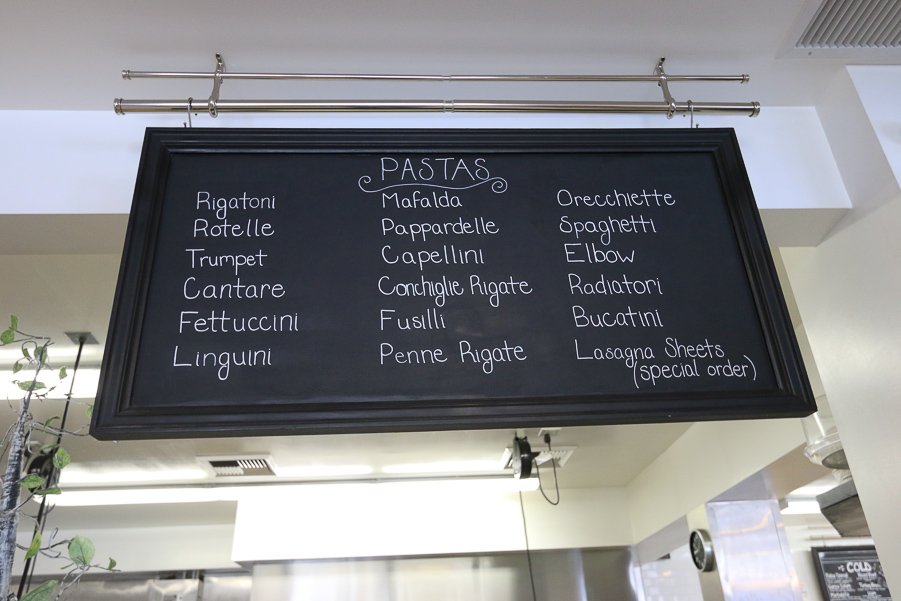 PASTAS
Rigatoni
Rotelle
Trumpet
Cantare
Fettuccini
Linguini
Mafalda
Pappardelle
Capellini
Conchiglie Rigate
Fusilli
Penne Rigate
Orecchiette
Spaghetti
Elbow
Radiatori
Bucatini
Lasagna Sheets
(special order)
COLD